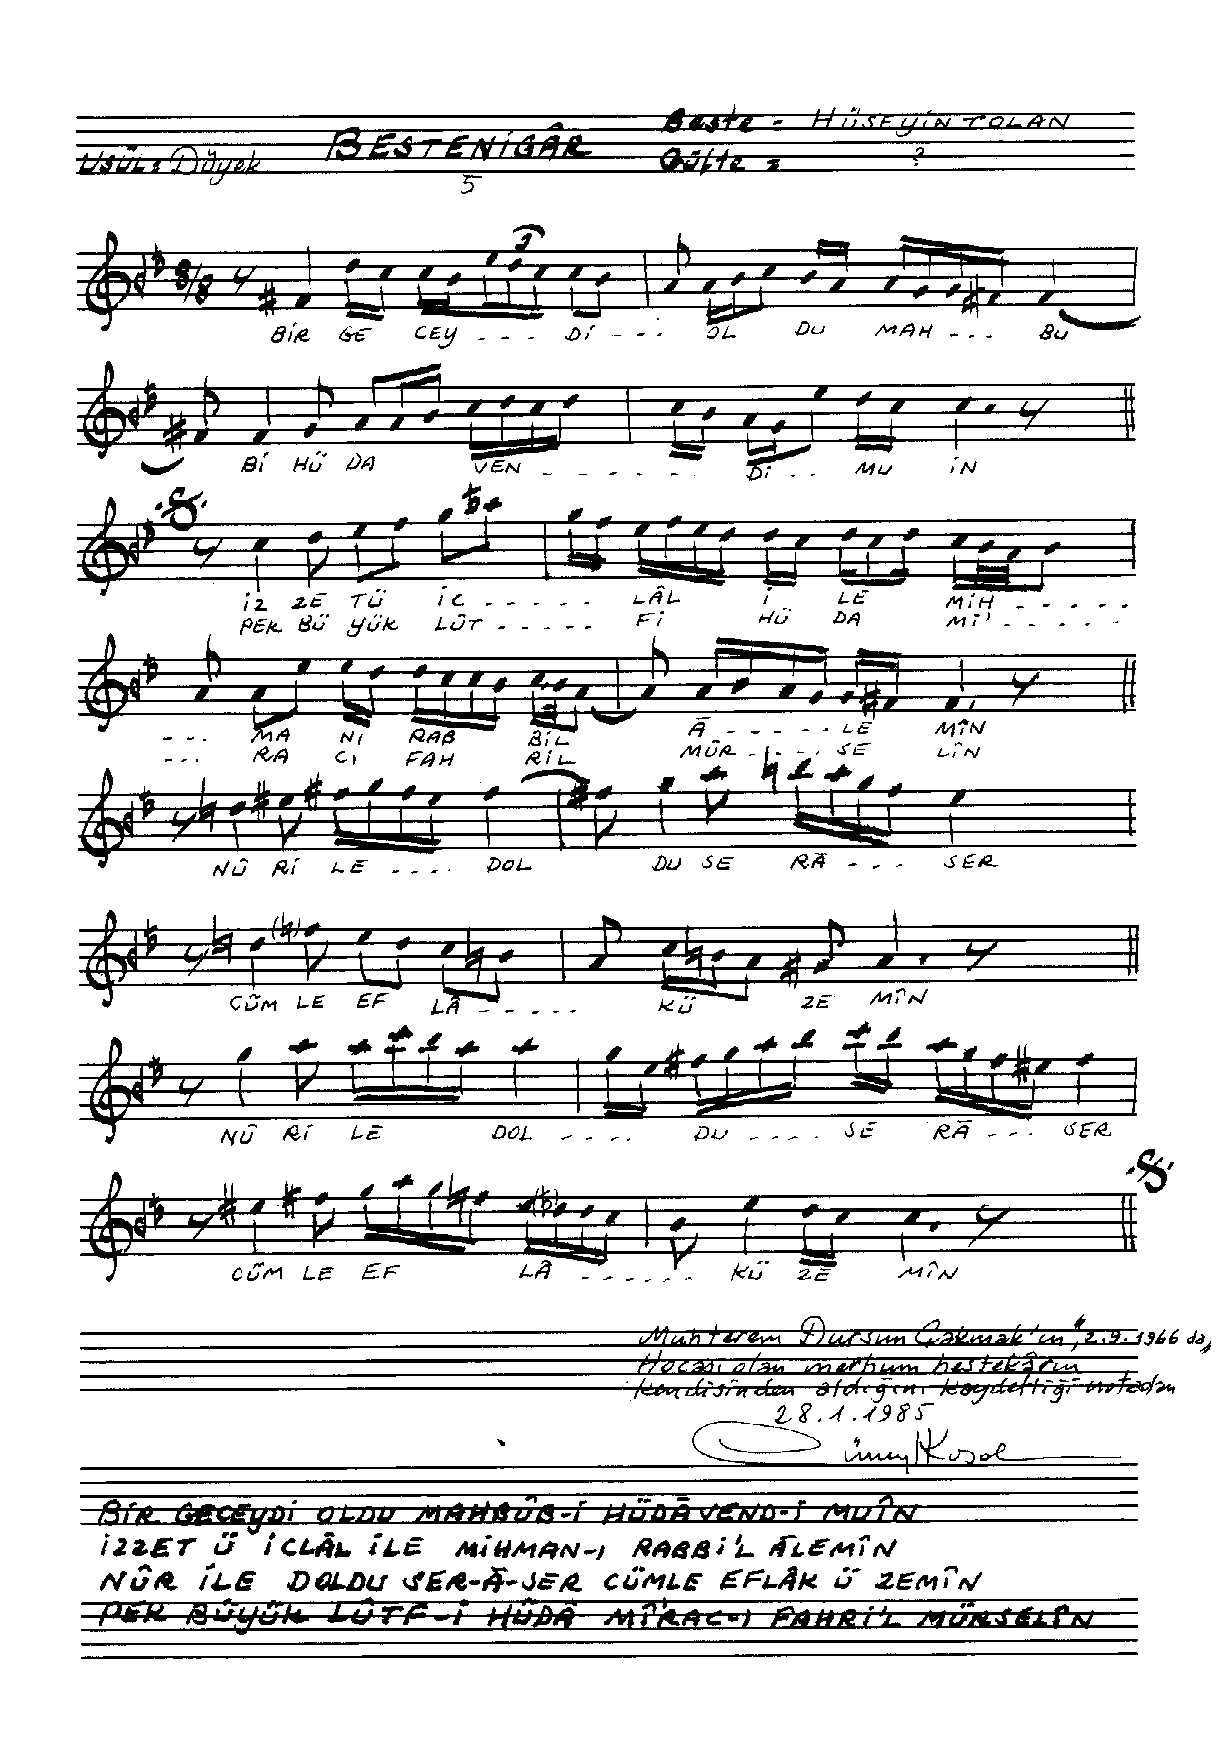 Beste = HÜSEYİN TOLAN
USÛL: Düyek BESTENİGÂR Güfte = ?
5
8/8
3
BİR GE CEY - - - - Dİ - - - OL DU MAH - - - BU
Bİ HÜ DA VEN - - - - - - - Dİ - - MU İN
İZ ZE TÜ İC - - - - - - LÂL İ LE MİH - - - - - -
PEK BÜ YÜK LÛT - - - - - Fİ HÜ DA Mİ' - - - - - -
- - - MA NI RAB BİL Â - - - - - - LE MÎN
- - - RA CI FAH RİL MÜR - - - - SE LÎN
NÛ Rİ LE - - - - DOL DU SE RÂ - - - SER
CÜM LE EF LÂ - - - - - KÜ ZE MÎN
NÛ Rİ LE DOL - - - - DU - - - - SE RÂ - - - SER
CÜM LE EF LÂ - - - - - - KÜ ZE MÎN
Muhterem Dursun Çakmak'ın, 2.9.1966 da,
Hocası olan merhum bestekârın
kendisinden aldığını kaydettiği notadan
28.1.1985
BİR GECEYDİ OLDU MAHBÛB-İ HÜDÂVEND-İ MUÎN
İZZET Ü İCLÂL İLE MİHMAN-I RABBİ'L ÂLEMÎN
NÛR İLE DOLDU SER-Â-SER CÜMLE EFLÂK Ü ZEMÎN
PEK BÜYÜK LÛTF-İ HÜDÂ MÎ'RAC-I FAHRİ'L MÜRSELÎN